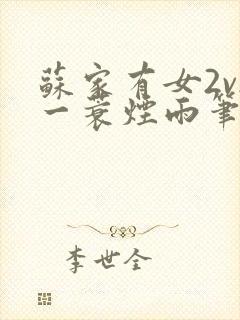 蘇家有女2v
一蓑煙雨筆
李世全